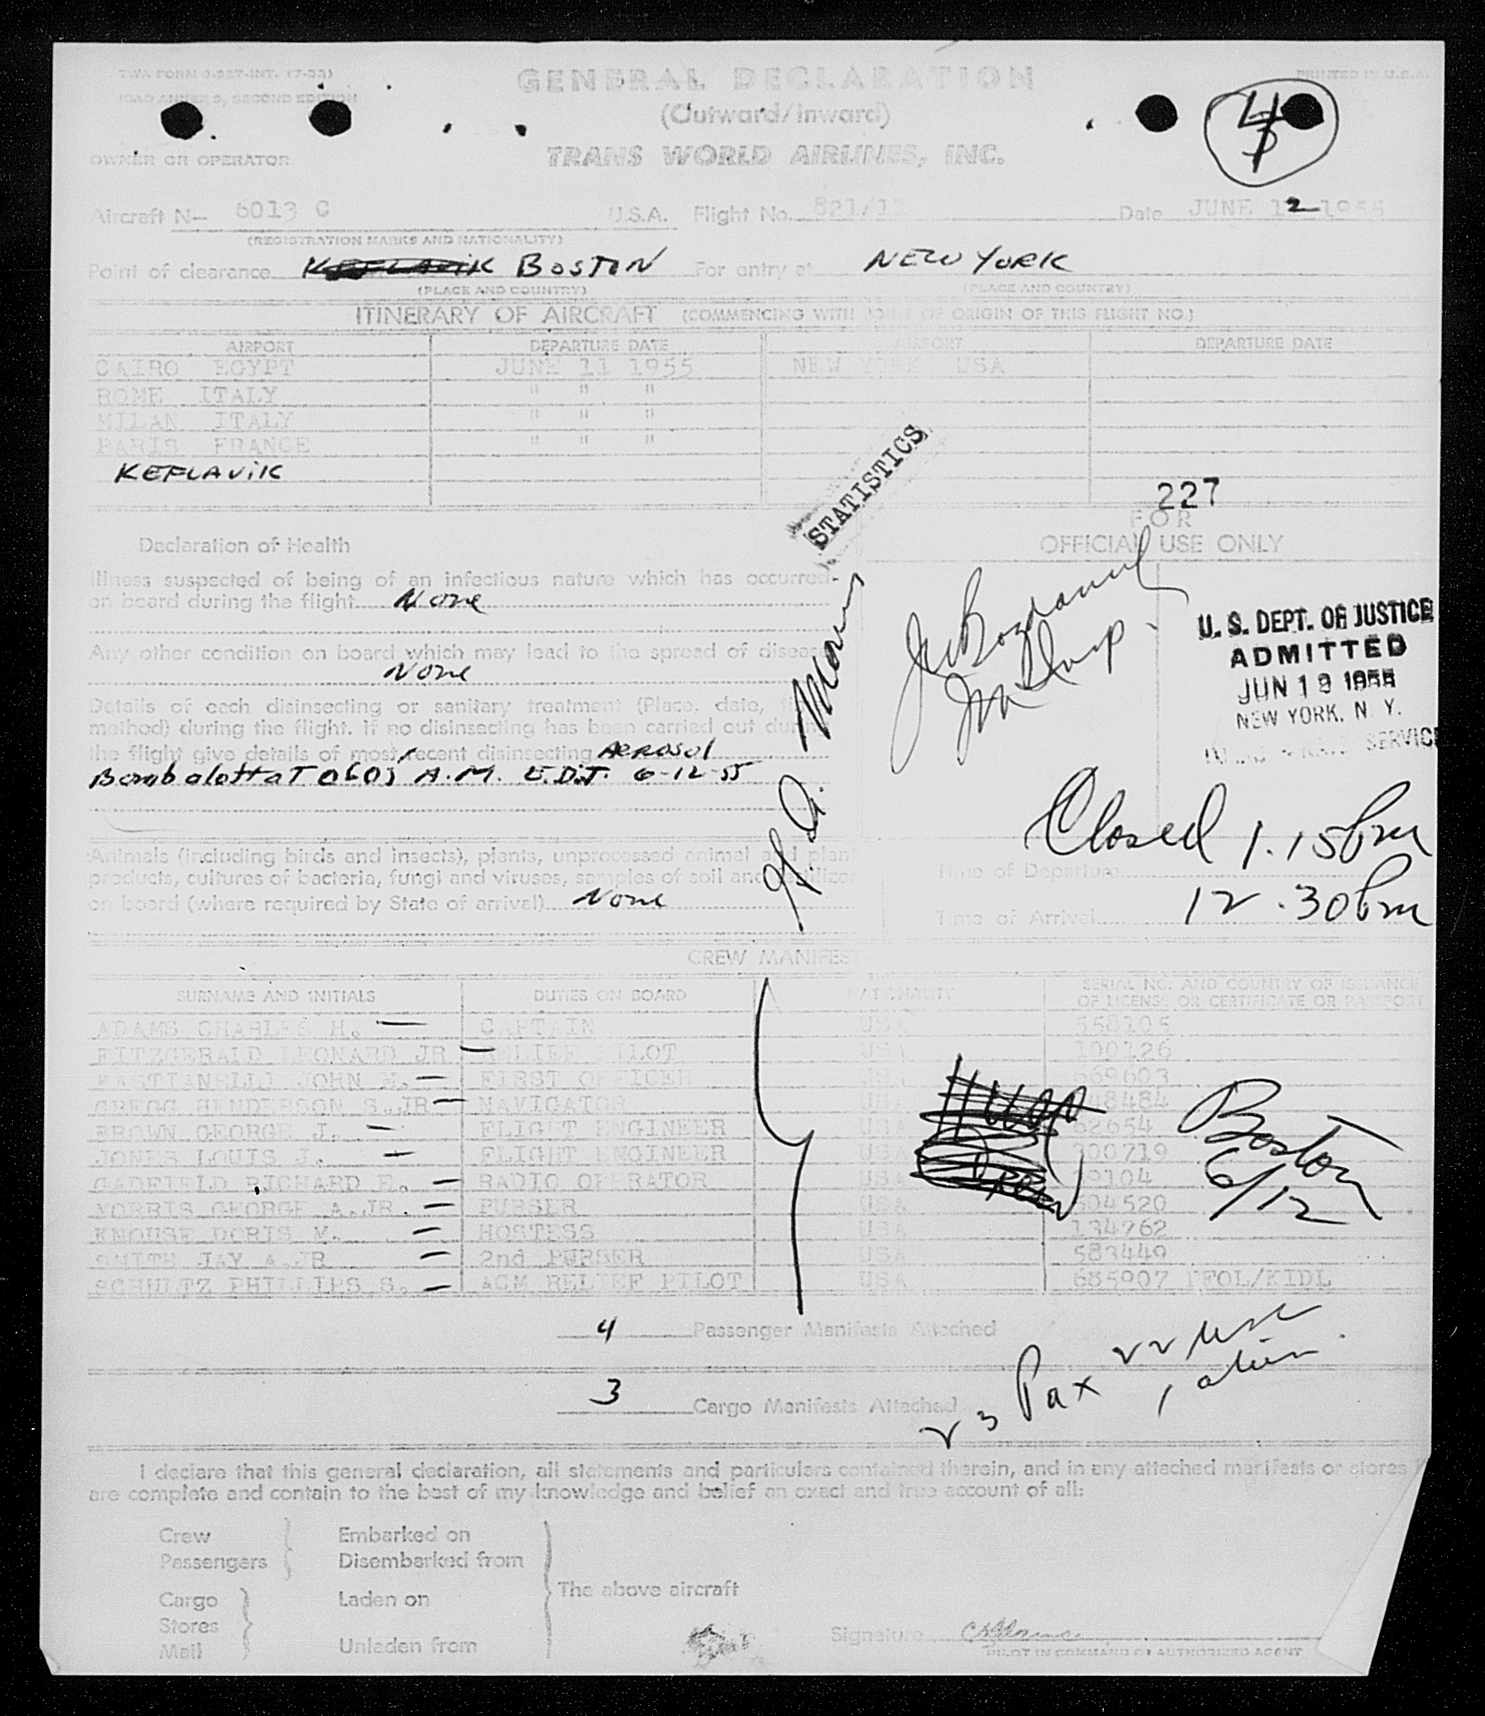 TWA FORM
PRINTED IN U.S.A.
GENERAL DECLARATION
ICAO ANNEX 9, SECOND EDITION
(Outward/Inward)
OWNER OR OPERATOR
TRANS WORLD AIRLINES, INC.
Aircraft N— 6013 C U.S.A. Flight No. Date JUNE 12 1955
(REGISTRATION MARKS AND NATIONALITY)
Point of clearance KEFLAVIK BOSTON For entry at NEW YORK
(PLACE AND COUNTRY) (PLACE AND COUNTRY)
ITINERARY OF AIRCRAFT (COMMENCING WITH POINT OF ORIGIN OF THIS FLIGHT NO.)
AIRPORT DEPARTURE DATE AIRPORT DEPARTURE DATE
CAIRO EGYPT JUNE 11 1955 NEW YORK USA
ROME ITALY " " "
MILAN ITALY " " "
PARIS FRANCE " " "
KEFLAVIK
STATISTICS
227
FOR
OFFICIAL USE ONLY
Declaration of Health
Illness suspected of being of an infectious nature which has occurred
on board during the flight None
Any other condition on board which may lead to the spread of disease
None
U. S. DEPT. OF JUSTICE
ADMITTED
JUN 19 1955
NEW YORK, N. Y.
SERVICE
Details of each disinsecting or sanitary treatment (Place, date,
method) during the flight. If no disinsecting has been carried out during
the flight give details of most recent disinsecting AEROSOL
Bomb alotta T 0605 A.M. E.D.T. 6-12-55
Closed 1.15 pm
Animals (including birds and insects), plants, unprocessed animal and plant
products, cultures of bacteria, fungi and viruses, samples of soil and fertilizer
on board (where required by State of arrival) None
Time of Departure
Time of Arrival 12.30 pm
CREW MANIFEST
SURNAME AND INITIALS DUTIES ON BOARD NATIONALITY SERIAL NO. AND COUNTRY OF ISSUANCE
OF LICENSE OR CERTIFICATE OR PASSPORT
ADAMS CHARLES H. CAPTAIN USA 558105
FITZGERALD LEONARD JR RELIEF PILOT USA 100126
BASTIANELLI JOHN FIRST OFFICER USA 669603
GREGG HENDERSON S.JR NAVIGATOR USA 48484
BROWN GEORGE J. FLIGHT ENGINEER USA 62654
JONES LOUIS J. FLIGHT ENGINEER USA 300719
GADFIELD RICHARD E. RADIO OPERATOR USA 19104
MORRIS GEORGE A.JR. PURSER USA 604520
KNOUSE DORIS M. HOSTESS USA 134762
SMITH JAY A.JR 2nd PURSER USA 583449
SCHULTZ PHILLIPS S. ACM RELIEF PILOT USA 685907 TFOL/KIDL
Boston
6/12
4 Passenger Manifests Attached
3 Cargo Manifests Attached
23 Pax 22 USC
1 alien
I declare that this general declaration, all statements and particulars contained therein, and in any attached manifests or stores
are complete and contain to the best of my knowledge and belief an exact and true account of all:
Crew Embarked on
Passengers Disembarked from
The above aircraft
Cargo Laden on
Stores
Mail Unladen from
Signature
PILOT IN COMMAND OR AUTHORIZED AGENT